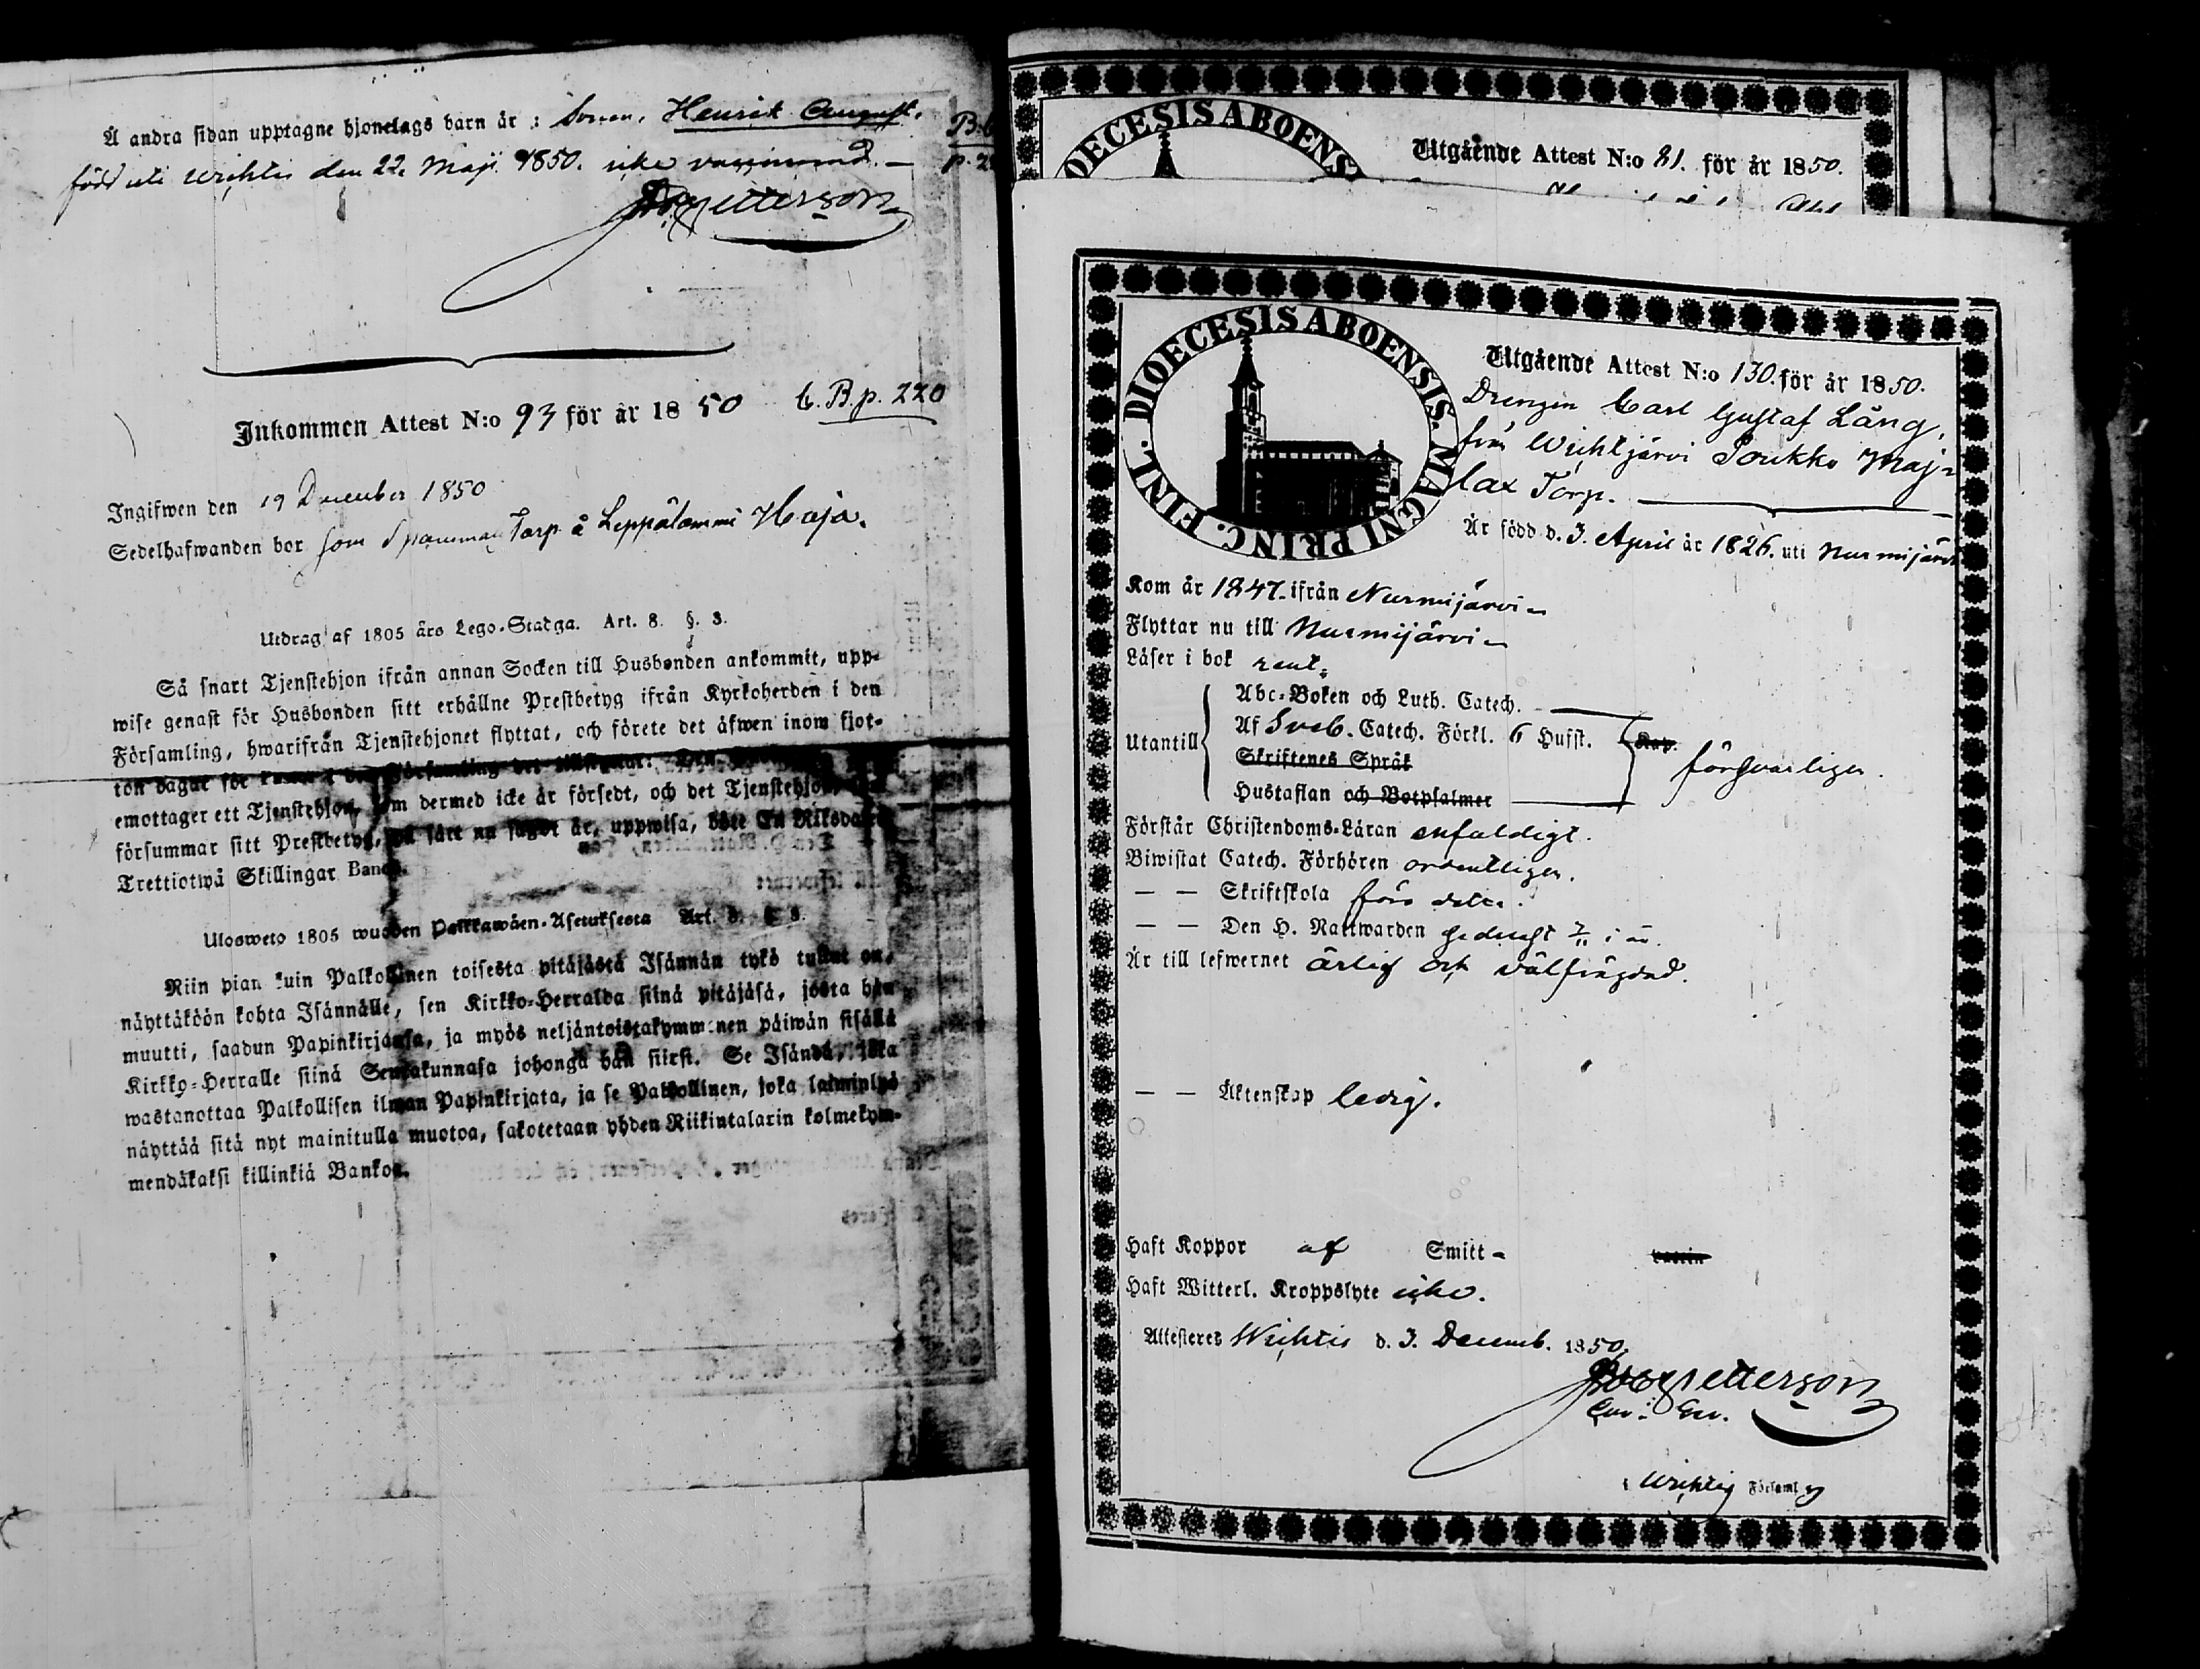 Å andra sidan upptagne hjonelags barn är : Sonen, Henrik August,
född uti Wichtis den 22. Maji 1850. icke vaccinerad. —
Petterson
Inkommen Attest N:o 93 för år 1850 C. B. p. 220
Ingifwen den 19 December 1850
Sedelhafwanden bor som Torp å Leppälammi Haja.
Utdrag af 1805 års Lego-Stadga. Art. 8. §. 3.
Så snart Tjenstehjon ifrån annan Socken till Husbonden ankommit, upp-
wise genast för Husbonden sitt erhållne Prestbetyg ifrån Kyrkoherden i den
Församling, hwarifrån Tjenstehjonet flyttat, och förete det äfwen inom fjor-
ton dagar för
emottager ett Tjenstehjon, som dermed icke är försedt, och det Tjenstehjon,
försummar sitt Prestbetyg, på sätt nu sagdt är, uppwisa, böte En Riksdaler
Trettiotwå Skillingar Banco.
Ulosweto 1805 wuoden Palkkawäen-Asetuksesta Art. 8. §. 3.
Niin pian kuin Palkollinen toisesta pitäjästä Isännän tykö tullut on,
näyttäköön kohta Isännälle, sen Kirkko-Herralda siinä pitäjäsä, josta hän
muutti, saadun Papinkirjansa, ja myös neljäntoistakymmenen päiwän sisällä
Kirkko-Herralle siinä Seurakunnasa johonga hän siirsi. Se Isändä, joka
wastanottaa Palkollisen ilman Papinkirjata, ja se Palkollinen, joka laiminlyö
näyttää sitä nyt mainitulla muotoa, sakotetaan yhden Riikintalarin kolmekym-
mendäkaksi killinkiä Bankoa.
DIOECESIS ABOENS
Utgående Attest N:o 81. för år 1850.
DIOECESIS ABOENSIS. MAGNI PRINC. FINL.
Utgående Attest N:o 130. för år 1850.
Drengen Carl Gustaf Lång,
från Wichtjärvi Soukko Maji-
lax Torp.
Är född d. 3. April år 1826. uti Nurmijärvi
Kom år 1847. ifrån Nurmijärvi
Flyttar nu till Nurmijärvi
Läser i bok rent.
Abc-Boken och Luth. Catech.
Utantill Af Sveb. Catech. Förkl. 6 Hufst. Kap. försvarligen.
Skriftenes Språk
Hustaflan och Botpsalmer
Förstår Christendoms-Läran enfaldigt.
Biwistat Catech. Förhören ordentligen.
— — Skriftskola före detta.
— — Den H. Nattwarden i år.
Är till lefwernet ärlig och välfrägdad.
— — Äktenskap ledig.
Haft Koppor af Smitt-
Haft Witterl. Kroppslyte icke.
Attesteres Wichtis d. 3. Decemb. 1850,
Petterson
i Wichtis Församl